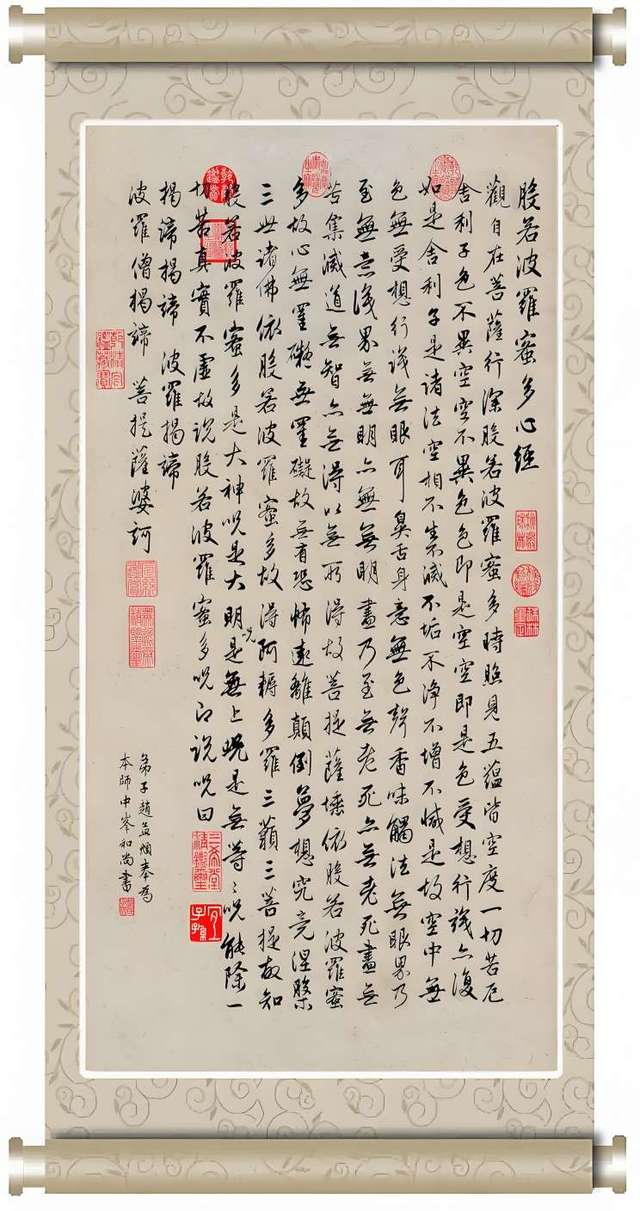 般若波羅蜜多心經
觀自在菩薩行深般若波羅蜜多時照見五蘊皆空度一切苦厄
舍利子色不異空空不異色色即是空空即是色受想行識亦復
如是舍利子是諸法空相不生不滅不垢不淨不增不減是故空中無
色無受想行識無眼耳鼻舌身意無色聲香味觸法無眼界乃
至無意識界無無明亦無無明盡乃至無老死亦無老死盡無
苦集滅道無智亦無得以無所得故菩提薩埵依般若波羅蜜
多故心無罣礙無罣礙故無有恐怖遠離顛倒夢想究竟涅槃
三世諸佛依般若波羅蜜多故得阿耨多羅三藐三菩提故知
般若波羅蜜多是大神呪是大明呪是無上呪是無等〻呪能除一
切苦真實不虛故說般若波羅蜜多呪即說呪曰
三希堂精鑑璽
宜子孫
揭諦揭諦 波羅揭諦
波羅僧揭諦 菩提薩婆訶
弟子趙孟頫奉為
本師中峯和尚書